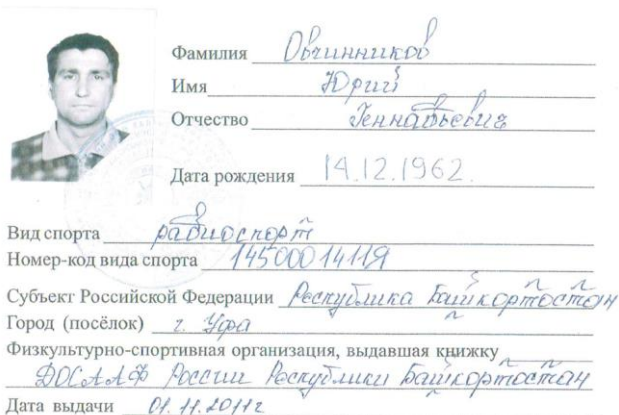 Фамилия Овчинников
Имя Юрий
Отчество Геннадьевич
Дата рождения 14.12.1962.
Вид спорта радиоспорт
Номер-код вида спорта 145000 1411Я
Субъект Российской Федерации Республика Башкортостан
Город (посёлок) г. Уфа
Физкультурно-спортивная организация, выдавшая книжку
ДОСААФ России Республики Башкортостан
Дата выдачи 01.11.2011г